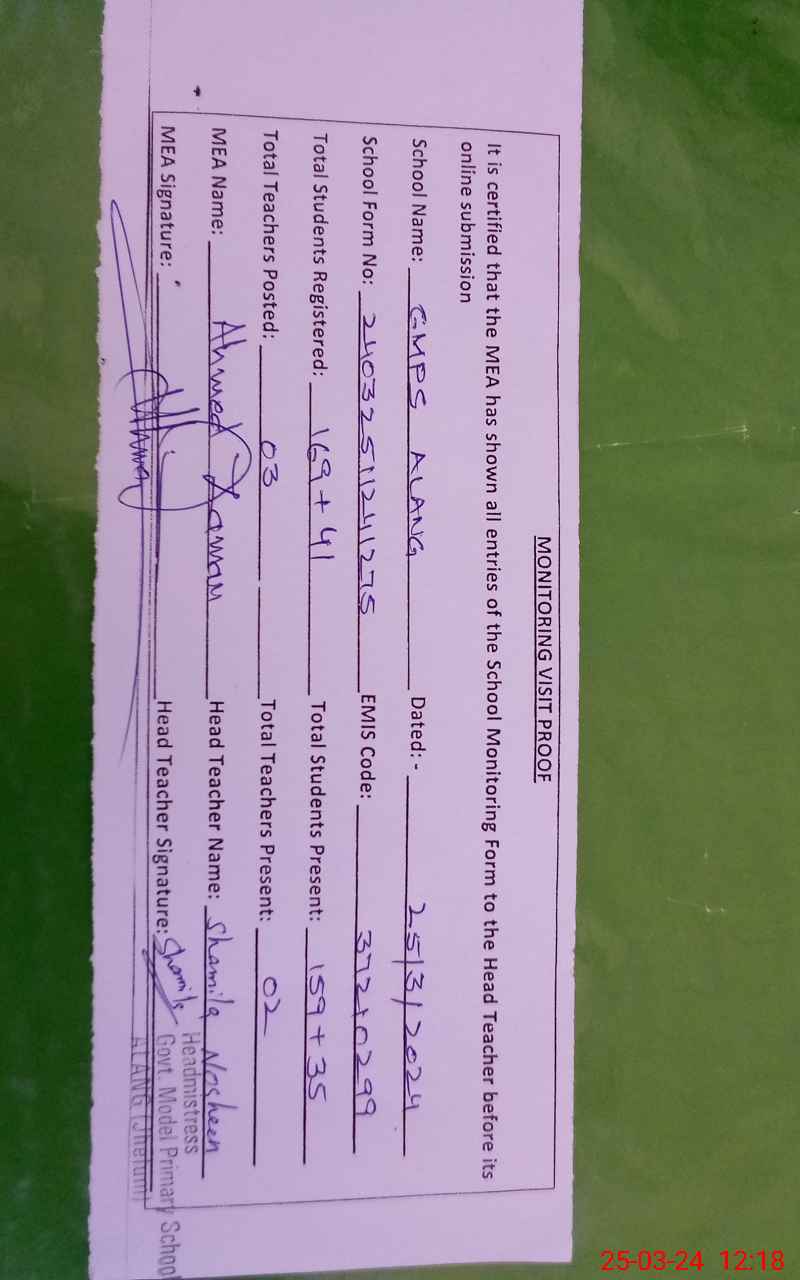 MONITORING VISIT PROOF
It is certified that the MEA has shown all entries of the School Monitoring Form to the Head Teacher before its
online submission
School Name: GMPS ALANG Dated: - 25/3/2024
School Form No: 24032511241275 EMIS Code: 37210299
Total Students Registered: 169+41 Total Students Present: 159+35
Total Teachers Posted: 03 Total Teachers Present: 02
MEA Name: Ahmed Zaman Head Teacher Name: Shamila Nosheen
MEA Signature: Head Teacher Signature: Shamila
Headmistress
Govt. Model Primary School
ALANG (Jhelum)
25-03-24 12:18